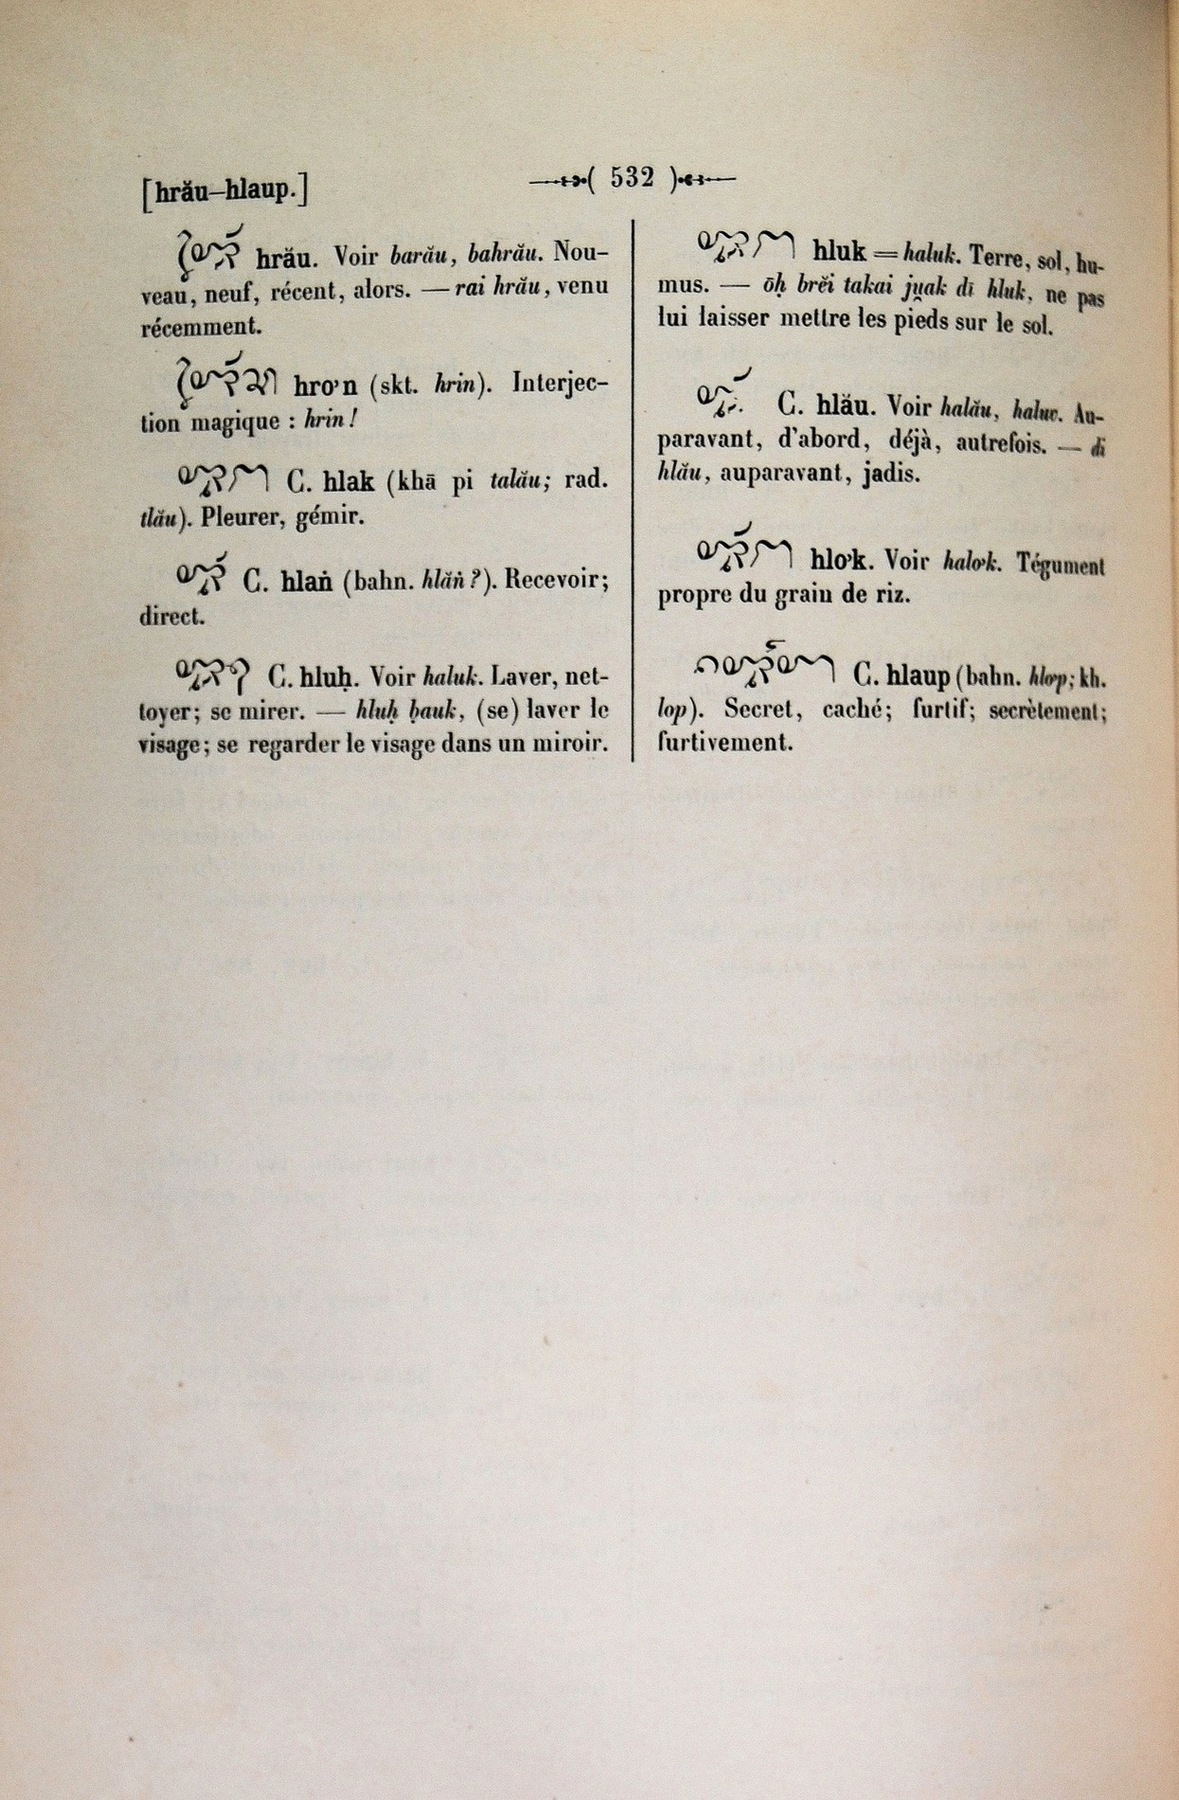 [hrău–hlaup.]
( 532 )
hrău. Voir barău, bahrău. Nou-
veau, neuf, récent, alors. — rai hrău, venu
récemment.
hro'n (skt. hrin). Interjec-
tion magique : hrin!
C. hlak (khā pi talău; rad.
tlău). Pleurer, gémir.
C. hlaṅ (bahn. hlăṅ?). Recevoir;
direct.
C. hluḥ. Voir haluk. Laver, net-
toyer; se mirer. — hluḥ ḅauk, (se) laver le
visage; se regarder le visage dans un miroir.
hluk = haluk. Terre, sol, hu-
mus. — ōḥ brĕi takai ju̯ak dī hluk, ne pas
lui laisser mettre les pieds sur le sol.
C. hlău. Voir halău, haluv. Au-
paravant, d'abord, déjà, autrefois. — di
hlău, auparavant, jadis.
hlo'k. Voir halo'k. Tégument
propre du grain de riz.
C. hlaup (bahn. hlơp; kh.
lop). Secret, caché; furtif; secrètement;
furtivement.